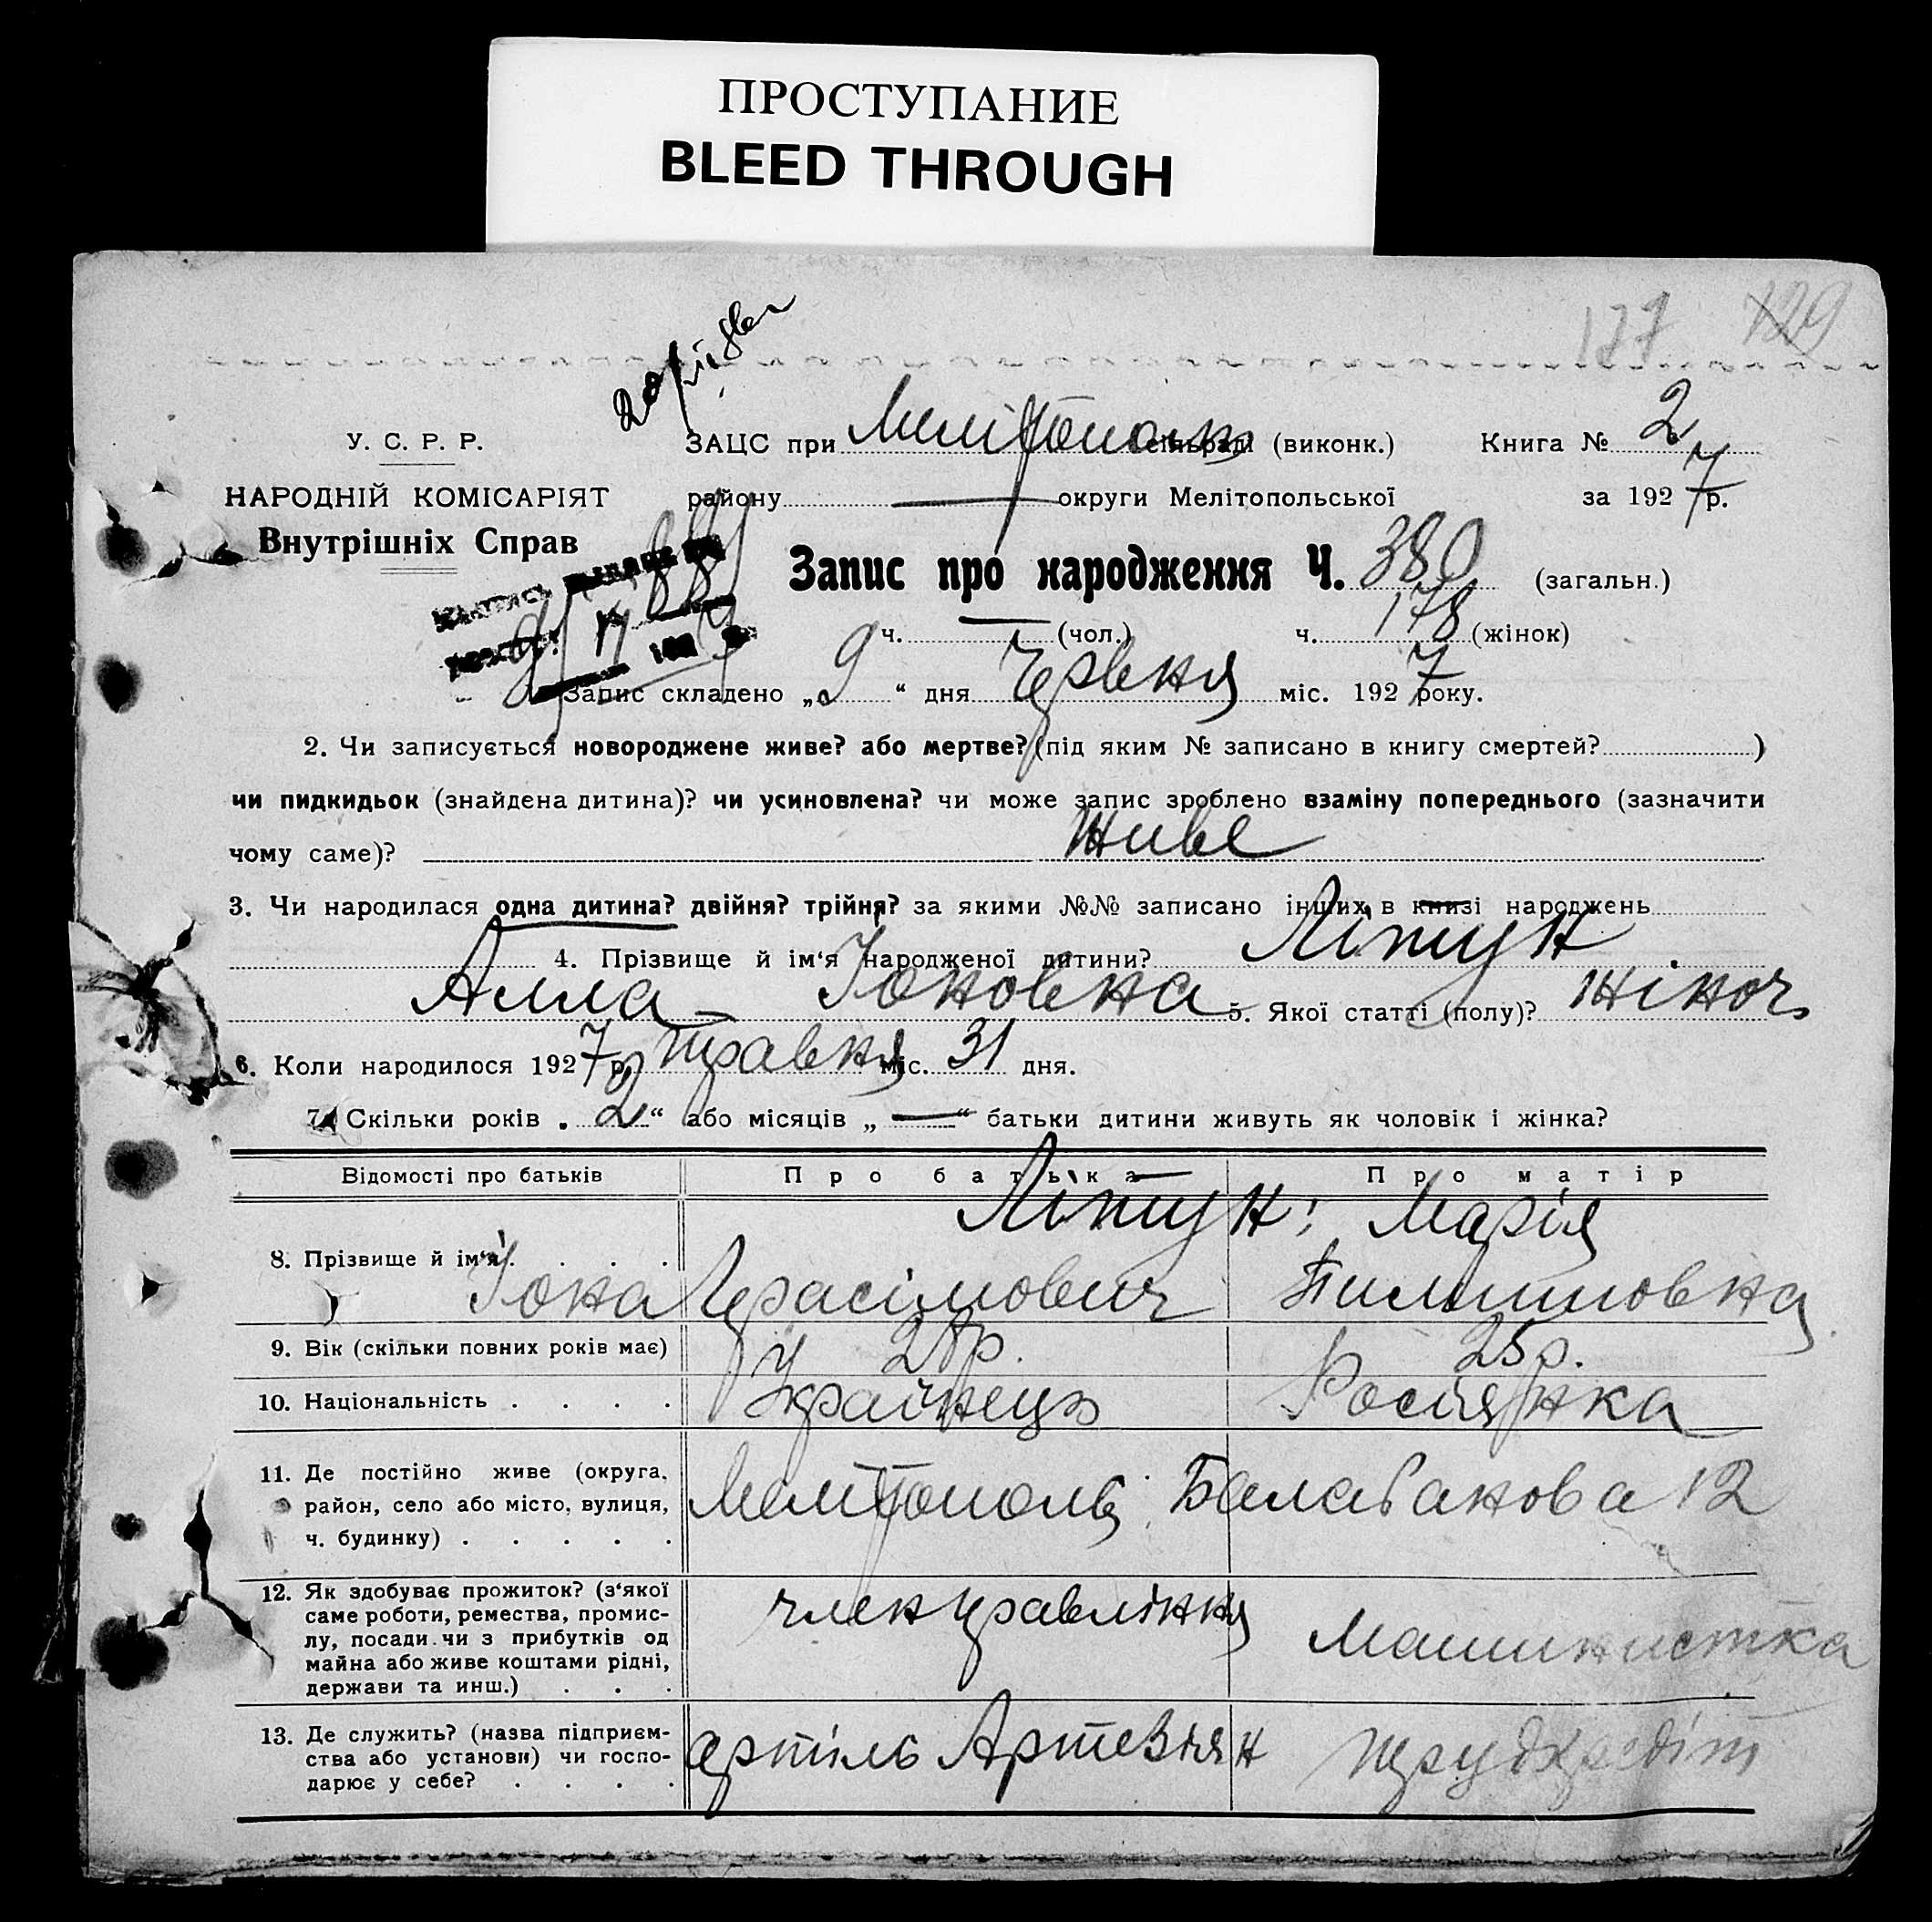 ПРОСТУПАНИЕ
BLEED THROUGH
177 129
У. С. Р. Р.
ЗАЦС при Мелітополь сільраді (виконк.) Книга № 2
НАРОДНІЙ КОМІСАРІЯТ
району — округи Мелітопольської за 1927 р.
Внутрішніх Справ
Запис про народження Ч. 380 (загальн.)
ч. — (чол.) ч. 178 (жінок)
Запис складено „9“ дня Червня міс. 1927 року.
2. Чи записується новороджене живе? або мертве? (під яким № записано в книгу смертей? )
чи пидкидьок (знайдена дитина)? чи усиновлена? чи може запис зроблено взаміну попереднього (зазначити
чому саме)? живе
3. Чи народилася одна дитина? двійня? трійня? за якими №№ записано інших в книзі народжень —
4. Прізвище й ім‘я народженої дитини? Ліпцун
Алла Іоновна 5. Якої статті (полу)? жіноч
6. Коли народилося 1927 р. травня міс. 31 дня.
7. Скільки років „2“ або місяців „—“ батьки дитини живуть як чоловік і жінка?
Відомості про батьків Про батька Про матір
8. Прізвище й ім‘я . . . . Ліпцун: Марія
Іона Герасімович Пилиповна
9. Вік (скільки повних років має) 28р. 25р.
10. Національність . . . . Українець Росіянка
11. Де постійно живе (округа,
район, село або місто, вулиця,
ч. будинку) . . . . .
Мелітополь Балабанова 12
12. Як здобуває прожиток? (з‘якої
саме роботи, ремества, промис-
лу, посади чи з прибутків од
майна або живе коштами рідні,
держави та инш.) . . .
член правління Машинистка
13. Де служить? (назва підприєм-
ства або установи) чи госпо-
дарює у себе? . . . .
артіль трудкредіт